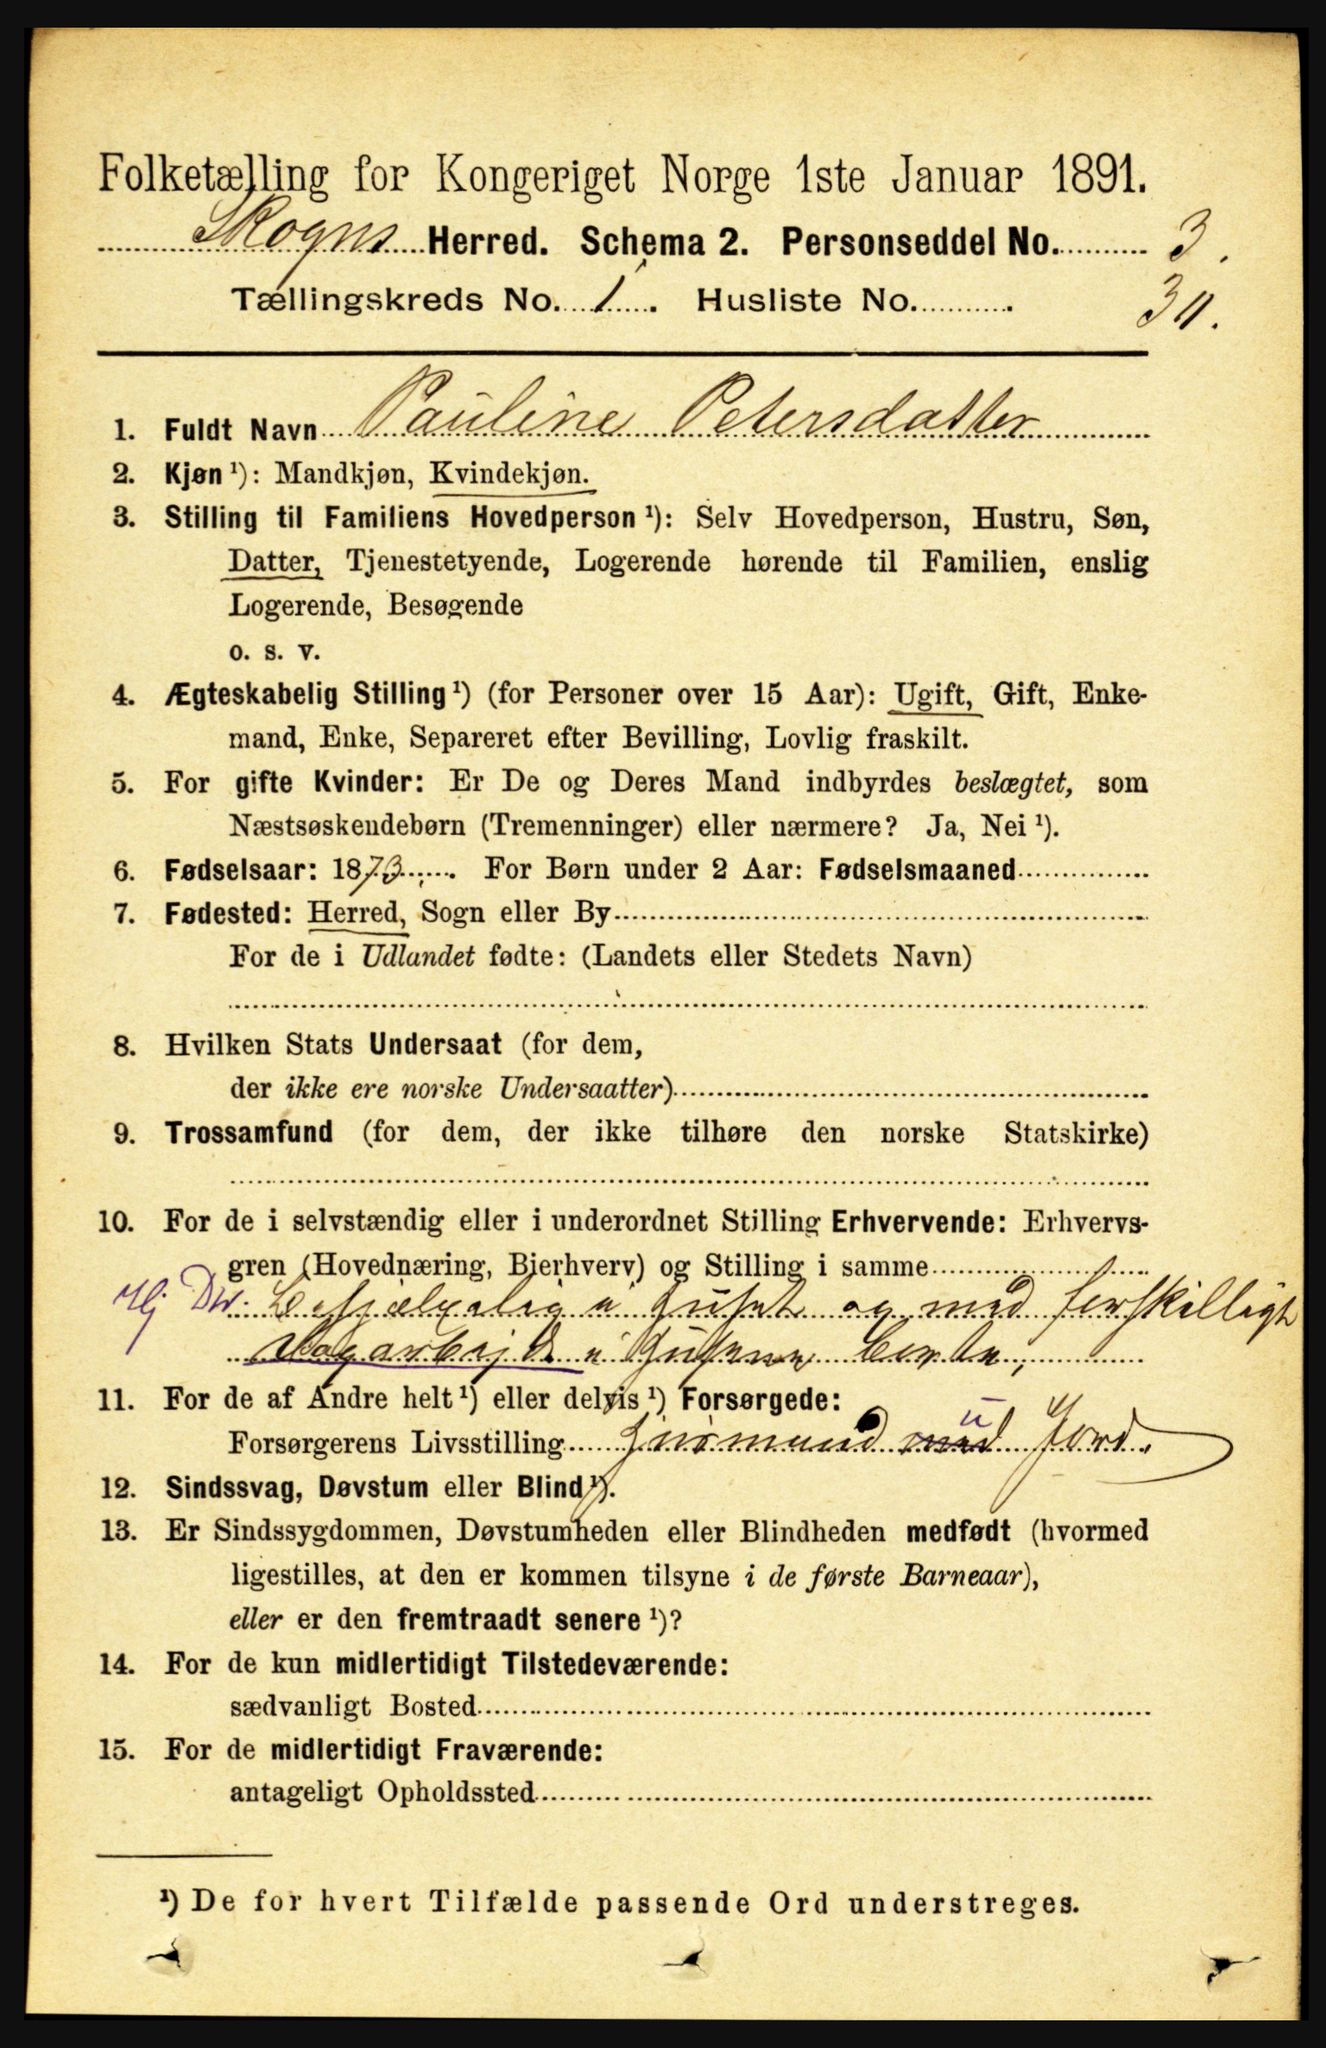 Folketælling for Kongeriget Norge 1ste Januar 1891.
Skogns Herred. Schema 2. Personseddel No. 3.
Tællingskreds No. 1. Husliste No. 30.
1. Fuldt Navn Pauline Petersdatter
2. Kjøn ¹): Mandkjøn, Kvindekjøn.
3. Stilling til Familiens Hovedperson ¹): Selv Hovedperson, Hustru, Søn,
Datter, Tjenestetyende, Logerende hørende til Familien, enslig
Logerende, Besøgende
o. s. v.
4. Ægteskabelig Stilling ¹) (for Personer over 15 Aar): Ugift, Gift, Enke-
mand, Enke, Separeret efter Bevilling, Lovlig fraskilt.
5. For gifte Kvinder: Er De og Deres Mand indbyrdes beslægtet, som
Næstsøskendebørn (Tremenninger) eller nærmere? Ja, Nei ¹).
6. Fødselsaar: 1873. For Børn under 2 Aar: Fødselsmaaned
7. Fødested: Herred, Sogn eller By
For de i Udlandet fødte: (Landets eller Stedets Navn)
8. Hvilken Stats Undersaat (for dem,
der ikke ere norske Undersaatter)
9. Trossamfund (for dem, der ikke tilhøre den norske Statskirke)
10. For de i selvstændig eller i underordnet Stilling Erhvervende: Erhvervs-
gren (Hovednæring, Bierhverv) og Stilling i samme
i Huset og med forskilligt
i
11. For de af Andre helt ¹) eller delvis ¹) Forsørgede:
Forsørgerens Livsstilling Husmand med u Jord.
12. Sindssvag, Døvstum eller Blind ¹).
13. Er Sindssygdommen, Døvstumheden eller Blindheden medfødt (hvormed
ligestilles, at den er kommen tilsyne i de første Barneaar),
eller er den fremtraadt senere ¹)?
14. For de kun midlertidigt Tilstedeværende:
sædvanligt Bosted
15. For de midlertidigt Fraværende:
antageligt Opholdssted
¹) De for hvert Tilfælde passende Ord understreges.